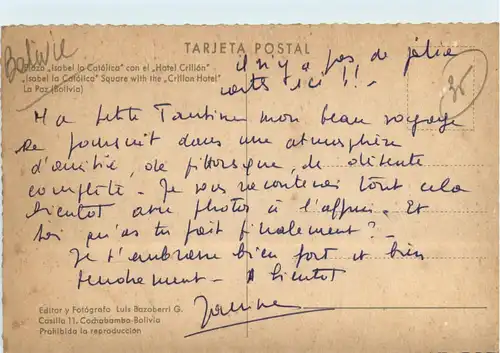 Bolivie
TARJETA POSTAL
Plaza „Isabel la Católica" con el „Hotel Crillón"
„Isabel la Católica" Square with the „Crillon Hotel"
La Paz (Bolivia)
il n'y a pas de jolie
carte ici !!-
35
Ma petite Tantine mon beau voyage
se poursuit dans une atmosphère
d'amitié, de pittoresque, de détente
complète - Je vous raconterai tout cela
bientôt avec photos à l'appui. Et
toi qu'as tu fait finalement ? -
Je t'embrasse bien fort et bien
tendrement - A bientôt
Editor y Fotógrafo Luis Bazoberri G.
Casilla 11, Cochabamba-Bolivia
Prohibida la reproducción